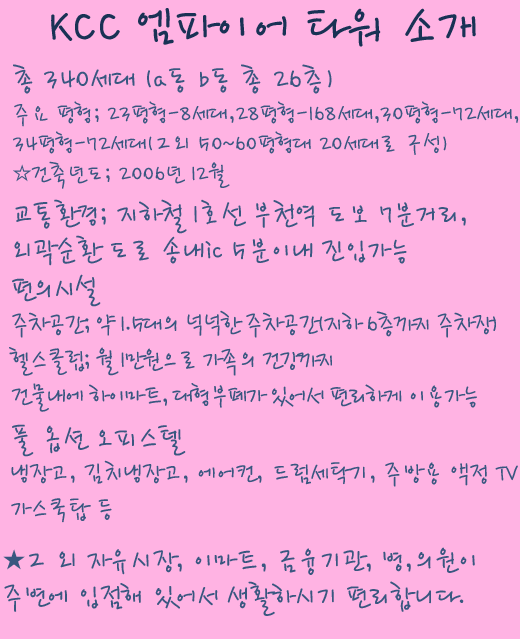 KCC 엠파이어 타워 소개
총 340세대 (a동 b동 총 26층)
주요 평형; 23평형-8세대,28평형-168세대,30평형-72세대,
34평형-72세대(그외 50~60평형대 20세대로 구성)
☆건축년도; 2006년 12월
교통환경; 지하철 1호선 부천역 도보 7분거리,
외곽순환 도로 송내ic 5분이내 진입가능
편의시설
주차공간; 약 1.5대의 넉넉한 주차공간(지하 6층까지 주차장)
헬스클럽; 월 1만원으로 가족의 건강까지
건물내에 하이마트, 대형부페가 있어서 편리하게 이용가능
풀 옵션 오피스텔
냉장고, 김치냉장고, 에어컨, 드럼세탁기, 주방용 액정 TV
가스쿡탑 등
★그 외 자유시장, 이마트, 금융기관, 병,의원이
주변에 입점해 있어서 생활하시기 편리합니다.